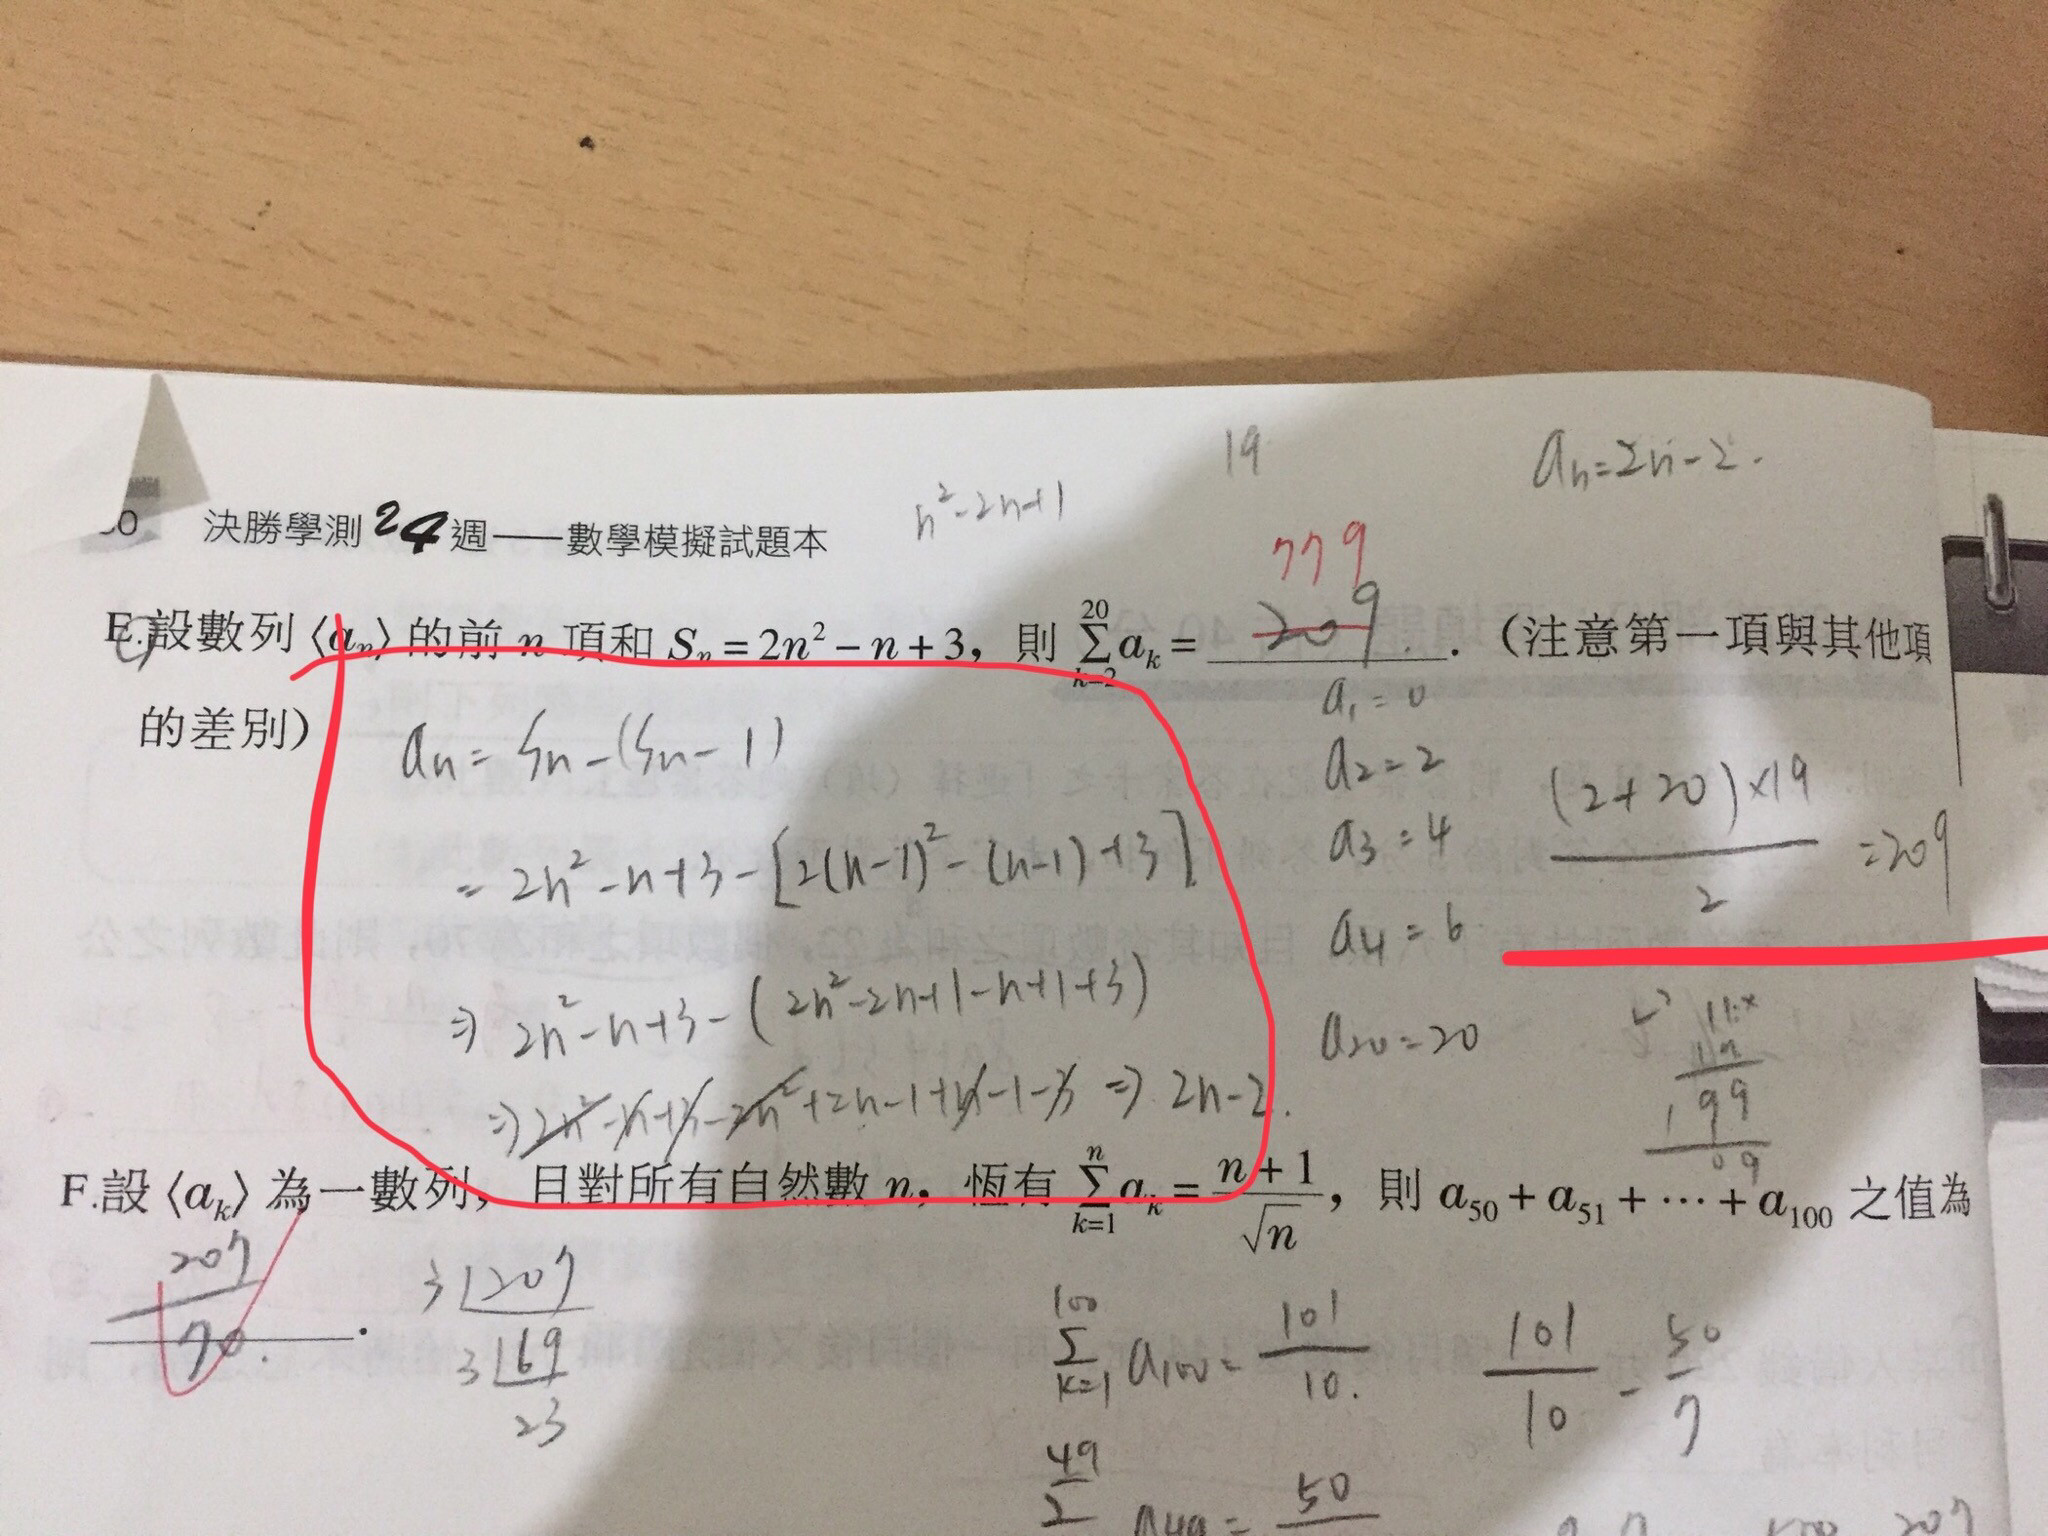 19
aₙ=2n-2.
n²-2n+1
決勝學測24週——數學模擬試題本
779
209.
E.設數列⟨aₙ⟩的前 n 項和 Sₙ=2n²-n+3,則 \sum_{k=2}^{20} a_k = ______.(注意第一項與其他項
的差別)
an= Sn-(Sn-1)
= 2n²-n+3-[2(n-1)²-(n-1)+3]
⇒ 2n²-n+3-(2n²-2n+1-n+1+3)
⇒ 2n²-n+3-2n²+2n-1+n-1-3 ⇒ 2n-2.
a₁=0
a₂=2
a₃=4
a₄=6
a₂₀=20
\frac{(2+20)×19}{2}=209
199
F.設⟨a_k⟩為一數列,且對所有自然數 n,恆有 \sum_{k=1}^{n} a_k = \frac{n+1}{\sqrt{n}},則 a₅₀+a₅₁+⋯+a₁₀₀ 之值為
\frac{207}{70}.
3 207
3 69
23
\sum_{k=1}^{100} a₁₀₀= \frac{101}{10}.
\frac{101}{10} - \frac{50}{7}
49
Σ a₄₉= 50